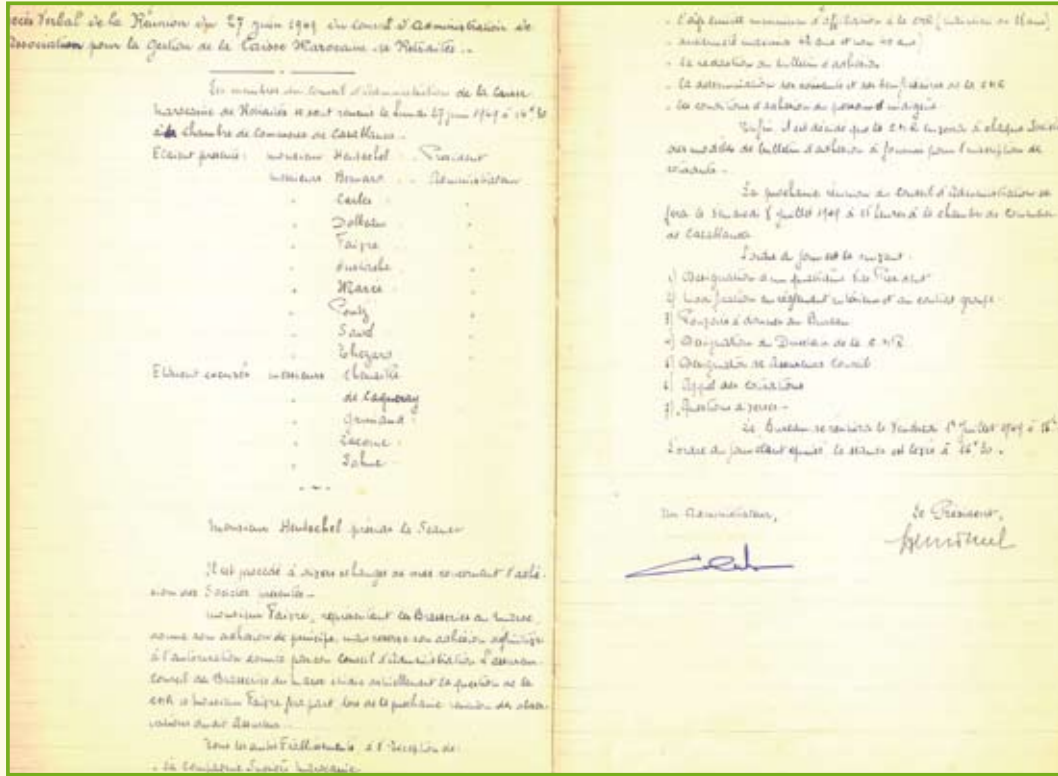 ocès Verbal de la Réunion du 27 juin 1949 du Conseil d'Administration de
l'Association pour la Gestion de la Caisse Marocaine de Retraites.-
Les membres du Conseil d'Administration de la Caisse
Marocaine de Retraites se sont réunis le lundi 27 juin 1949 à 14h30
à la Chambre de Commerce de Casablanca.
Etaient présents: Monsieur Hentschel . Président
Messieurs Bernard . - Administrateur
" Carles "
" Dolbeau "
" Faivre "
"
" Marce "
"
"
"
Etaient excusés Messieurs
" de Caqueray
" Grimaud
" Lacome
"
Monsieur Hentschel préside la Séance
Il est procédé à divers échanges de vues concernant l'adhé-
sion des Sociétés présentes.-
Monsieur Faivre, représentant les Brasseries du Maroc,
donne son adhésion de principe, mais réserve son adhésion définitive
à l'autorisation donnée par son Conseil d'Administration. L'assureur-
conseil des Brasseries du Maroc étudie actuellement la question de la
CMR et Monsieur Faivre fera part, lors de la prochaine réunion des obser-
vations dudit Assureur.
Tous les autres Etablissements à l'exception de:
- la Compagnie Sucrière Marocaine
- l'âge limite minimum d'affiliation à la CMR (minimum de 18 ans)
- ancienneté maximum 42 ans et non 40 ans)
- la rédaction du bulletin d'adhésion
- la détermination des cotisants et des bénéficiaires de la CMR
- les conditions d'adhésion du personnel indigène
Enfin, il est décidé que la CMR enverra à chaque Société
des modèles de bulletin d'adhésion à fournir pour l'inscription de
cotisants.-
La prochaine réunion du Conseil d'Administration se
fera le 8 juillet 1949 à 15 heures à la Chambre de Commerce
de Casablanca
L'ordre du jour est le suivant:
1) Désignation d'un Vice Président
2) Modification du règlement intérieur et du contrat groupe.
3) Pouvoirs à donner au Bureau
4) Désignation du Directeur de la CMR
5) Désignation de Assureurs Conseil
6) Appel des cotisations
7) Questions diverses -
Le Bureau se réunira le Vendredi 1er Juillet 1949 à 16h
L'ordre du jour étant épuisé la séance est levée à 16h30.
Un Administrateur,
Le Président,